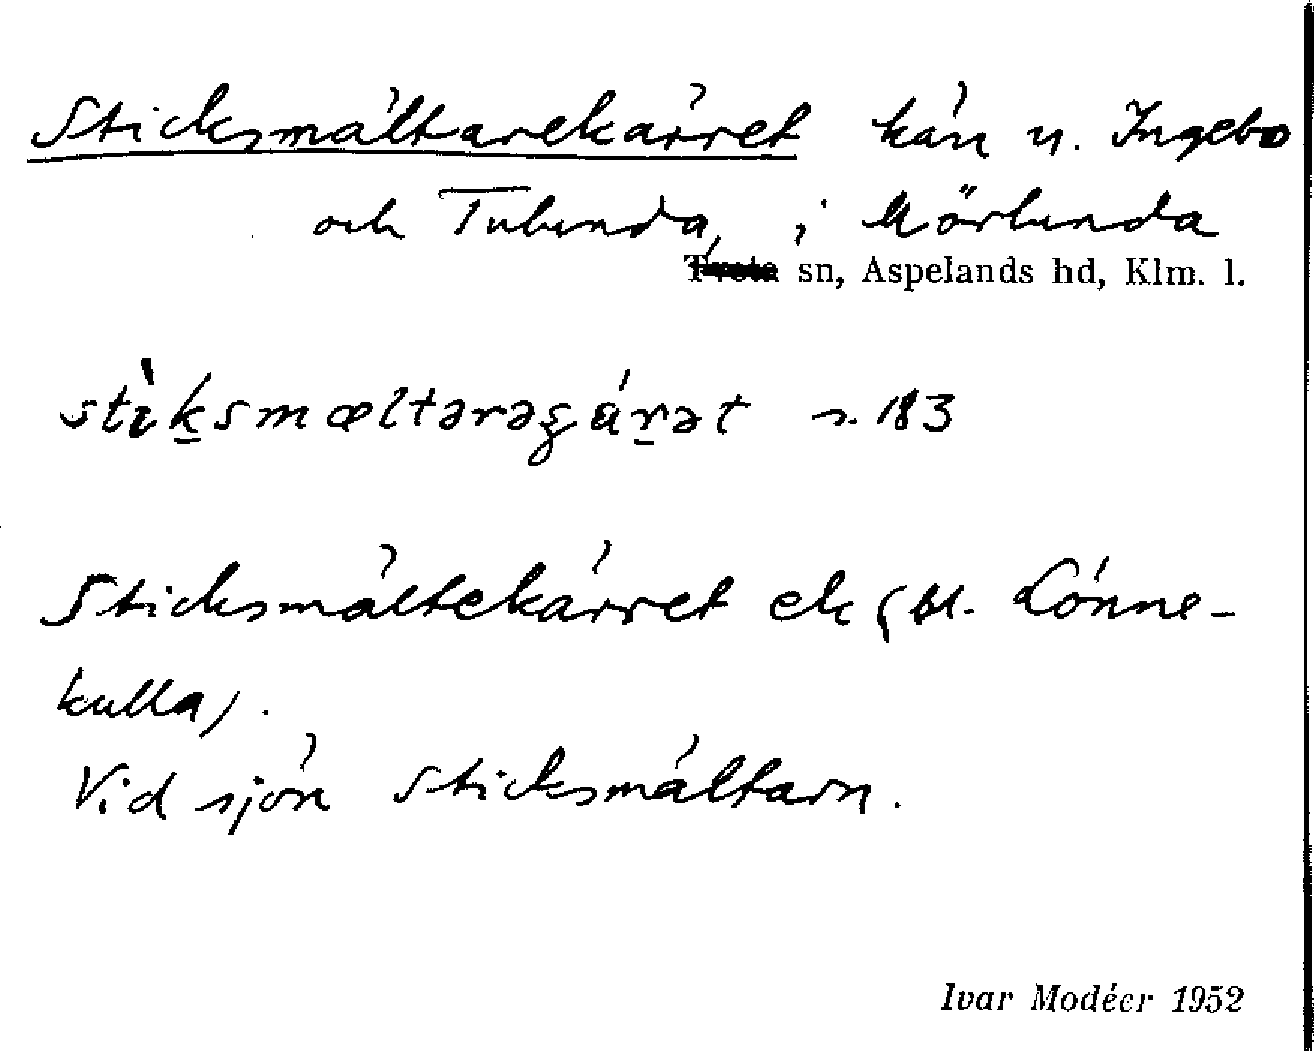 Sticksmältarekärret kärr u. Ingebo
och Tulunda, i Mörlunda
sn, Aspelands hd, Klm. l.
stìk̠smæltərəgäṟət s. 183
Sticksmältekärret ek (bl. Lönne-
kulla).
Vid sjön Sticksmältarn.
Ivar Modéer 1952